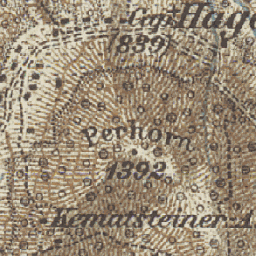 Hag
839
Perhorn
1392
Kematsteiner